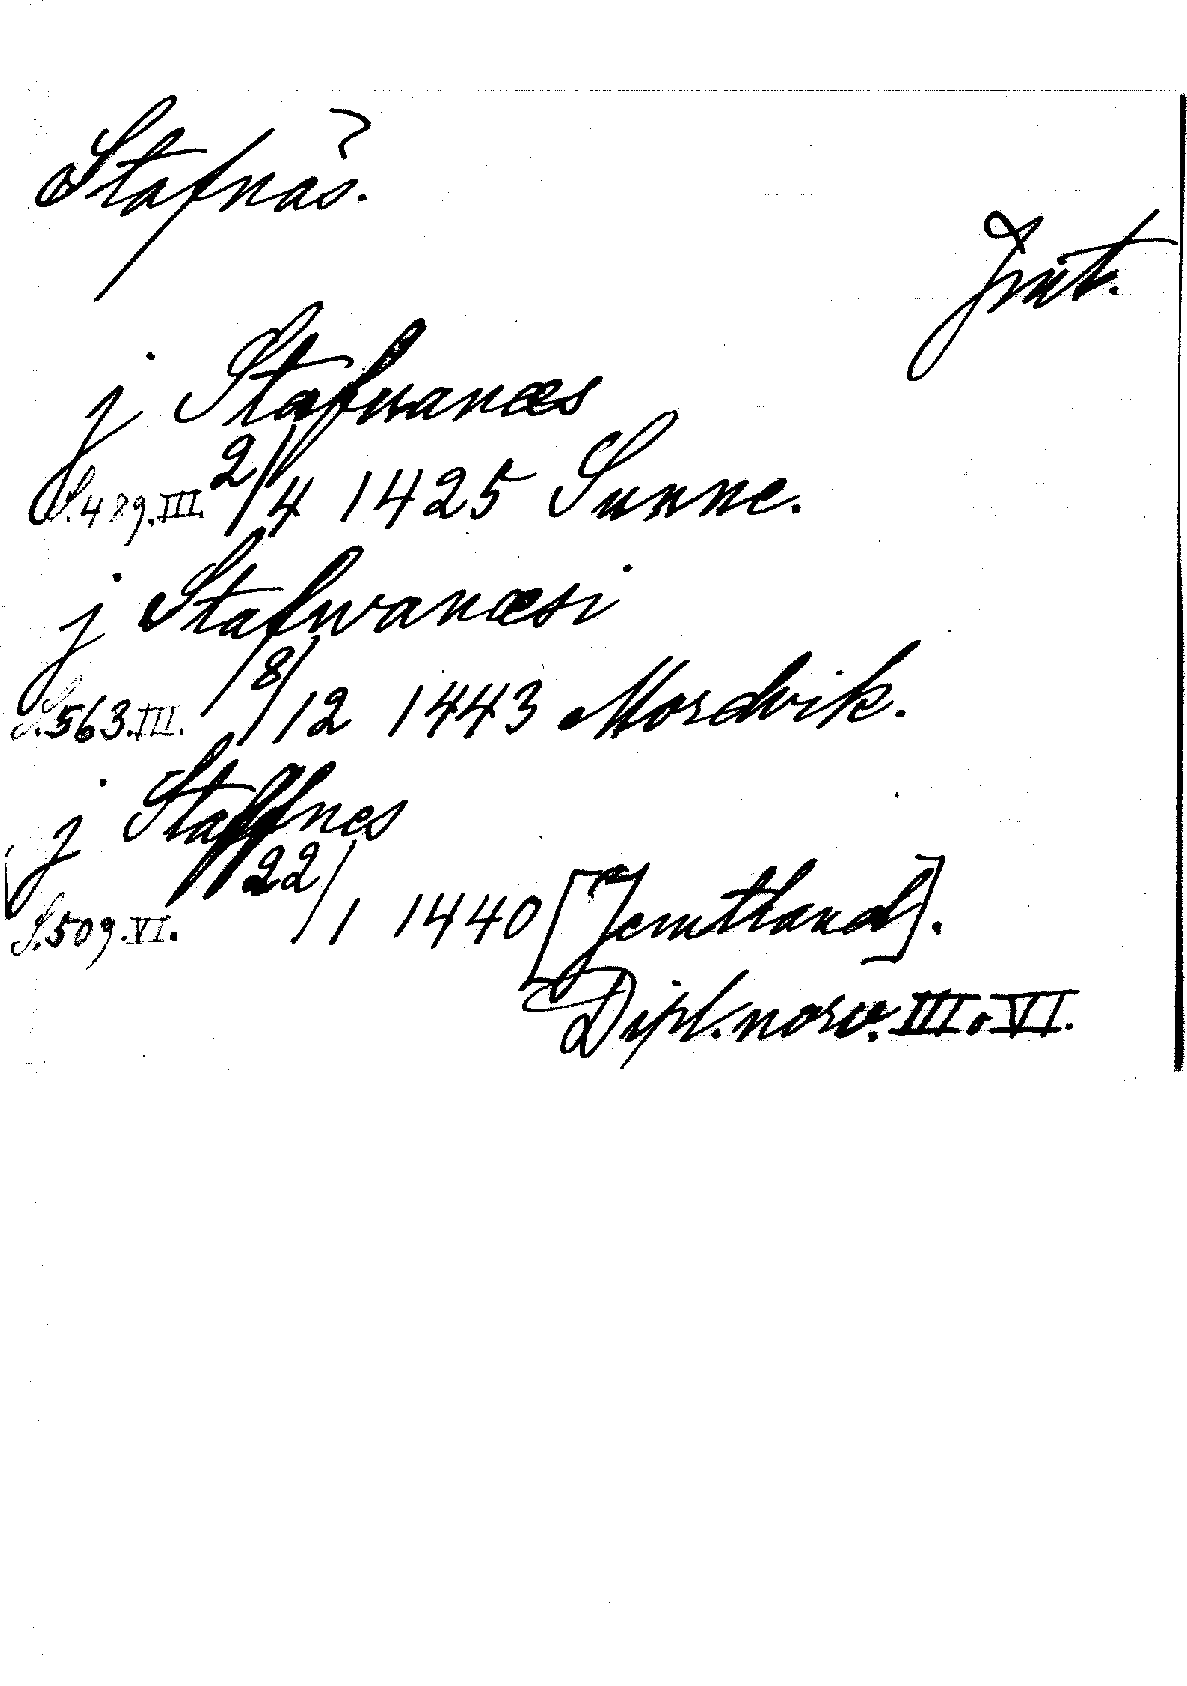 Stafnäs.
Jmt.
j Stafwanæs
S. 489. III. 2/4 1425 Sunne.
j Stafwanæsi
S. 563. III. 8/12 1443 Mordvik.
j Staffnes
S. 509. VI. 22/1 1440 [Jemtland].
Dipl. norv. III o VI.